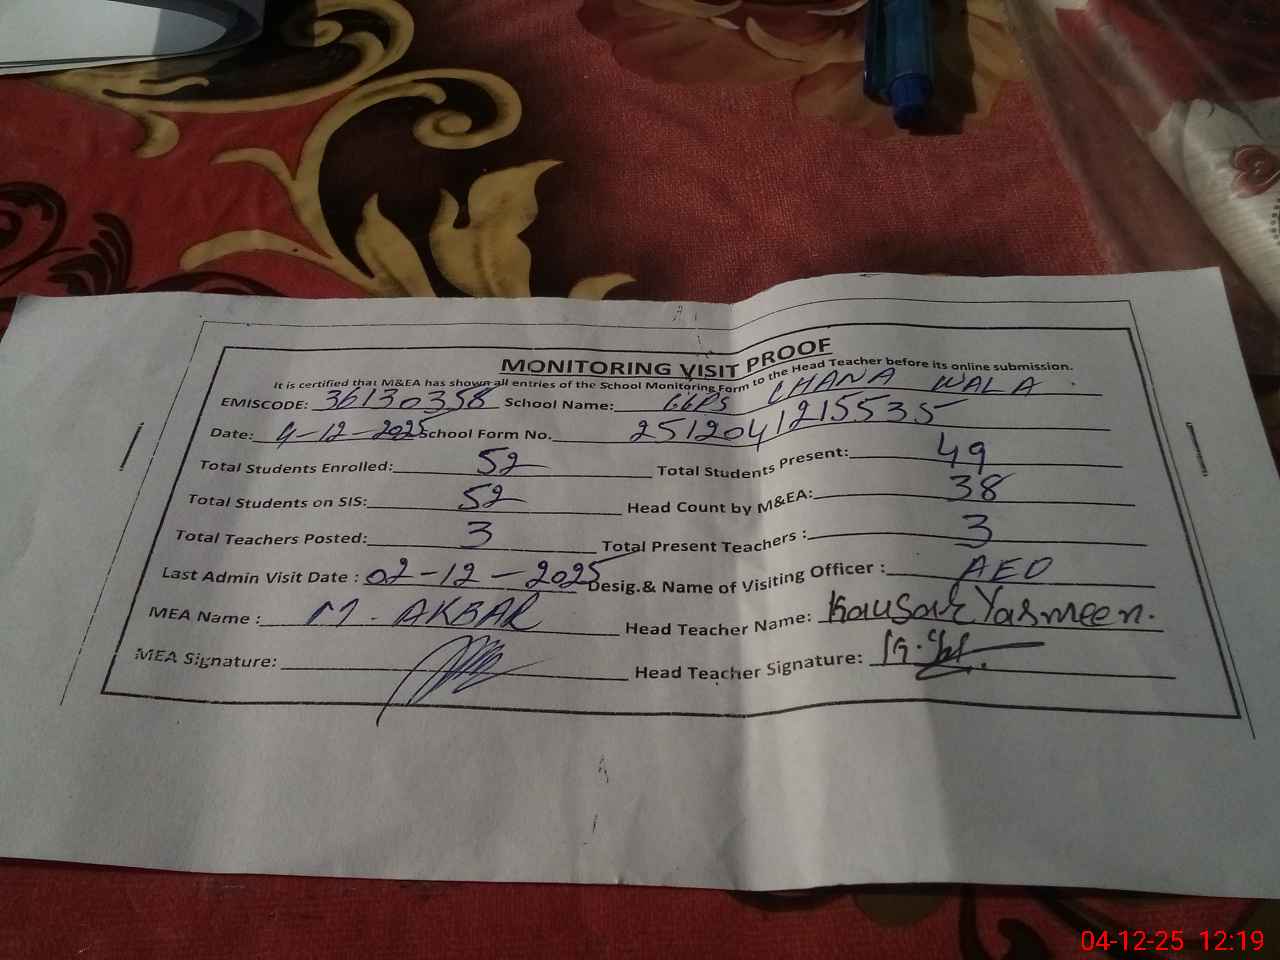 MONITORING VISIT PROOF
It is certified that M&EA has shown all entries of the School Monitoring Form to the Head Teacher before its online submission.
EMISCODE: 36130358 School Name: GGPS CHANA WALA
Date: 4-12-2025 School Form No. 2512041215535
Total Students Enrolled: 52 Total Students Present: 49
Total Students on SIS: 52 Head Count by M&EA: 38
Total Teachers Posted: 3 Total Present Teachers : 3
Last Admin Visit Date : 02-12-2025 Desig.& Name of Visiting Officer : AEO
MEA Name : M. AKBAR Head Teacher Name: Kausar Yasmeen.
MEA Signature: Head Teacher Signature:
04-12-25 12:19